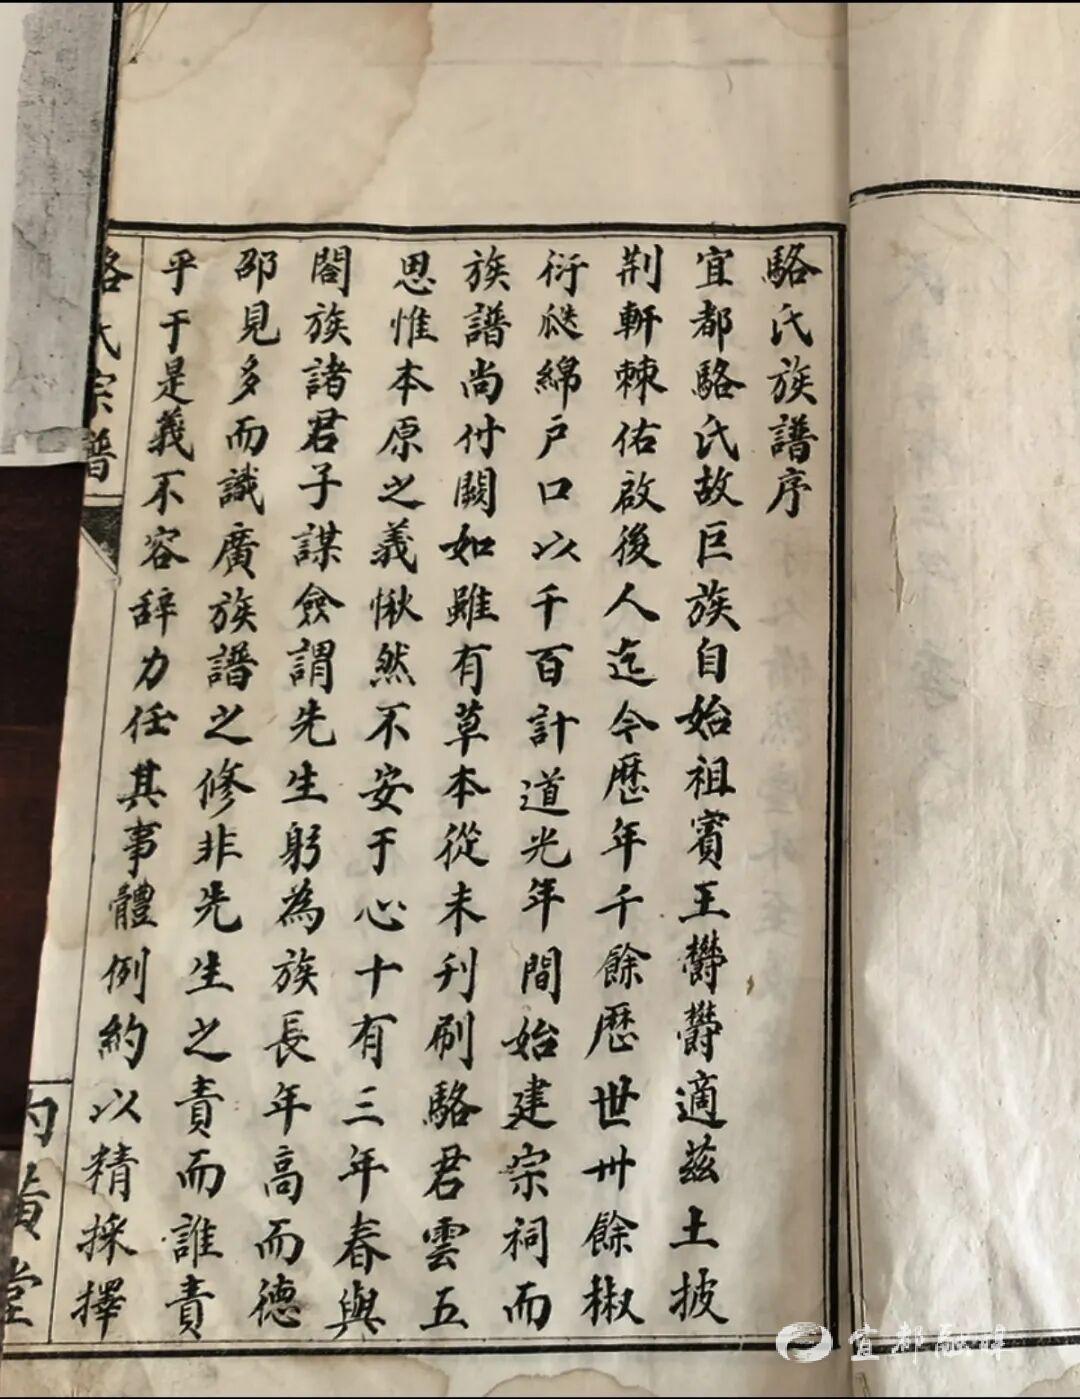 駱氏族譜序
宜都駱氏故巨族自始祖賓王欝欝適茲土披
荆斬棘佑啟後人迄今歷年千餘歷世卅餘椒
衍瓞綿户口以千百計道光年間始建宗祠而
族譜尚付闕如雖有草本從未刊刷駱君雲五
思惟本原之義愀然不安于心十有三年春與
閤族諸君子謀僉謂先生躬為族長年高而德
邵見多而識廣族譜之修非先生之責而誰責
乎于是義不容辞力任其事體例約以精採擇
駱氏宗譜
堂
宜都融媒